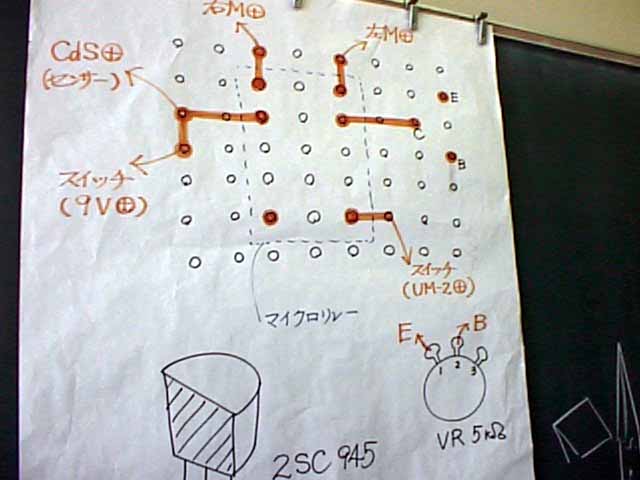 右M⊕
左M⊕
CdS⊕
(センサー)
E
C
B
スイッチ
(9V⊕)
スイッチ
(UM-2⊕)
マイクロリレー
E
B
1 2 3
VR 5kΩ
2SC 945